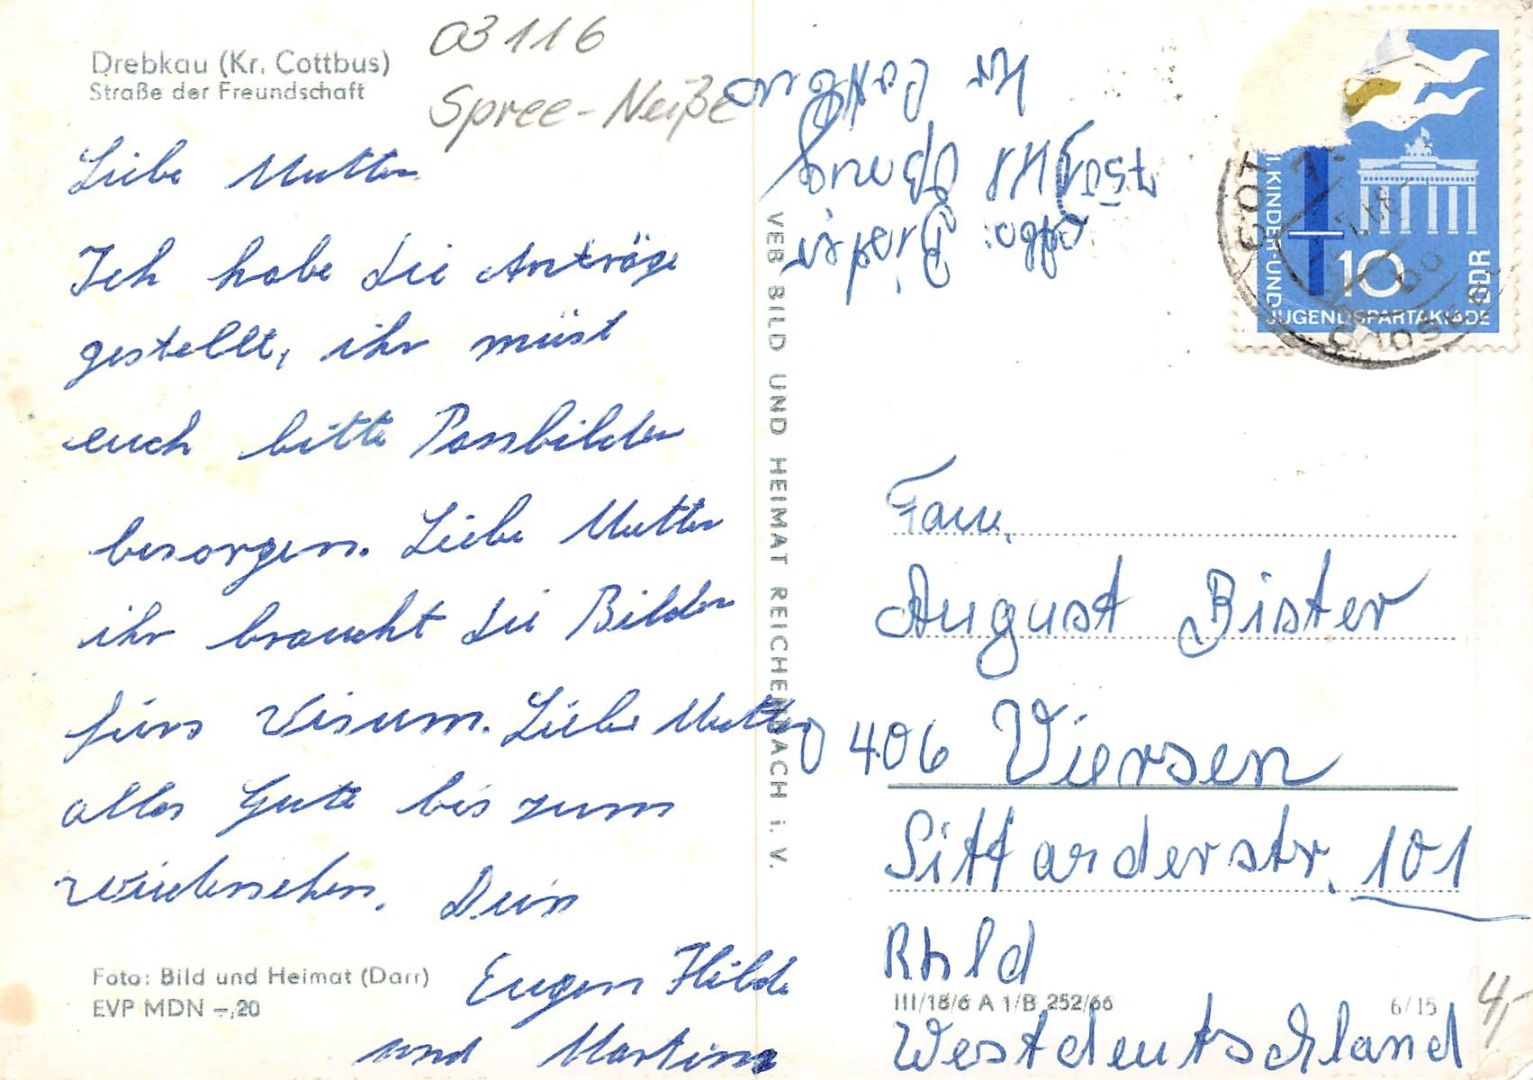 Drebkau (Kr. Cottbus)
Straße der Freundschaft
03116
Spree-Neiße
Liebe Mutter
Ich habe die Anträge
gestellt, ihr müst
euch bitte Passbilder
besorgen. Liebe Mutter
ihr braucht die Bilder
fürs Visum. Liebe Mutter
alles Gute bis zum
wiedersehen. Dein
Eugen Hilde
und Martina
Foto: Bild und Heimat (Darr)
EVP MDN –,20
VEB BILD UND HEIMAT REICHENBACH i. V.
Abs: Bister
7501
Kr Cottbus
KINDER-UND
JUGENDSPARTAKIADE
10
DDR
COT
Fam,
August Bister
406 Viersen
Sittarderstr. 101
Rhld
Westdeutschland
III/18/6 A 1/B 252/66
6/15
4,-